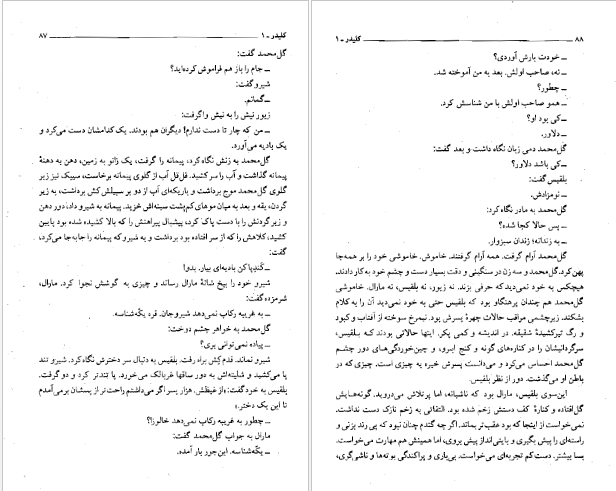 کلیدر ـ ۱ ۸۷
گل‌محمد گفت:
ـ جام را باز هم فراموش کرده‌اید؟
شیرو گفت:
ـ گمانم.
زیور نیش را به نیش واگرفت:
ـ من که چار تا دست ندارم! دیگران هم بودند. یک کدامشان دست می‌کرد و
یک بادیه می‌آورد.
گل‌محمد به زنش نگاه کرد، پیمانه را گرفت، یک زانو به زمین، دهن به دهنهٔ
پیمانه گذاشت و آب را سر کشید. قل‌قل آب از گلوی پیمانه برخاست، سیبک نیز زیر
گلوی گل‌محمد موج برداشت و باریکه‌ای آب از دو بر سبیلش کش برداشت، به زیر
گردن، یقه و بعد به میان موهای کم‌پشت سینه‌اش خزید. پیمانه به شیرو داد، دور دهن
و زیر گردنش را با دست پاک کرد، پیشبال پیراهنش را که بالا کشیده شده بود پایین
کشید، کلاهش را که از سر افتاده بود برداشت و به شیرو که پیمانه را جابه‌جا می‌کرد،
گفت:
بادیه‌ای بیار. بدو!
شیرو خود را بیخ شانهٔ مارال رساند و چیزی به گوشش نجوا کرد. مارال،
شرمزده گفت:
ـ به غریبه رکاب نمی‌دهد شیروجان. قره یکه‌شناسه.
گل‌محمد به خواهر چشم دوخت:
ـ پیاده نمی‌توانی بری؟
شیرو نماند. قدم کش براه رفت. بلقیس به دنبال سر دخترش نگاه کرد. شیرو تند
پا می‌کشید و شلیته‌اش به دور ساقها غربالک می‌خورد. پا تندتر کرد و دو گرفت.
بلقیس به خود گفت: «از غیظش. هزار پسر اگر می‌داشتم راحت‌تر از پسشان برمی‌آمدم
تا این یک دختر.»
ـ چطور به غریبه رکاب نمی‌دهد خالوزا؟
مارال به جواب گل‌محمد گفت:
ـ یکه‌شناسه. این‌جور بار آمده.
۸۸ کلیدر ـ ۱
ـ خودت بارش آوردی؟
ـ نه، صاحب اولش. بعد به من آموخته شد.
ـ چطور؟
ـ همو صاحب اولش با من شناسش کرد.
ـ کی بود او؟
ـ دلاور.
گل‌محمد دمی زبان نگاه داشت و بعد گفت:
ـ کی باشد دلاور؟
بلقیس گفت:
ـ نومزادش.
گل‌محمد به مادر نگاه کرد:
ـ پس حالا کجا شده؟
ـ به زندانه؛ زندان سبزوار.
گل‌محمد آرام گرفت. همه آرام گرفتند. خاموش. خاموشی خود را بر همه‌جا
پهن کرد. گل‌محمد و سه زن در سنگینی و دقت بسیار دست و چشم خود به کار دادند.
هیچکس به خود نمی‌دید که حرفی بزند. نه زیور، نه بلقیس، نه مارال. خاموشی
گل‌محمد هم چندان پرهنگاو بود که بلقیس حتی به خود نمی‌دید آن را به کلام
بشکند. زیرچشمی مراقب حالات چهرهٔ پسرش بود. نیمرخ سوخته از آفتاب و کبود
و رگ تیرکشیدهٔ شقیقه. در اندیشه و کمی پکر. اینها حالاتی بودند که بلقیس،
سرگردانیشان را در کناره‌های گونه و کنج ابرو، و چین‌خوردگی‌های دور چشم
گل‌محمد احساس می‌کرد و می‌دانست پسرش خیره به چیزی است، چیزی که در
باطن او می‌گذشت. دور از نظر بلقیس.
این‌سوی بلقیس، مارال بود که ناشیانه، اما پرتلاش می‌دروید. گونه‌هایش
گل‌افتاده و کنارهٔ کف دستش زخم شده بود. التفاتی به زخم نازک دست نداشت.
نمی‌خواست از اینجا که بود عقب‌تر بماند. اگر چه گندم چنان نبود که پی رند بزنی و
راسته‌ای را پیش بگیری و پیش بروی، اما همینش هم مهارت می‌خواست.
بسا بیشتر. دست کم تجربه‌ای می‌خواست. بی‌باری و پراکندگی بوته‌ها و ناشی‌گری،